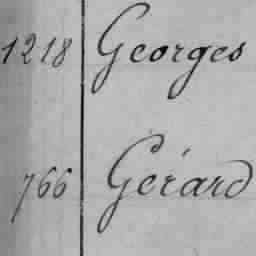 1218 Georges
766 Gérard